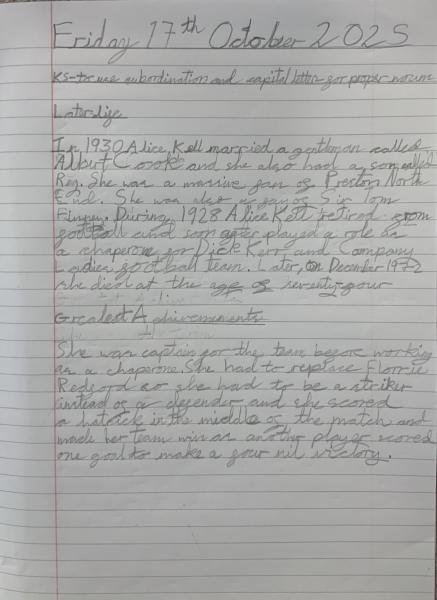 Friday 17th October 2025
KS-to use subordination and capital letters for proper nouns
Later life
In 1930 Alice Kell married a gentleman called
Albert Cook and she also had a son called
Reg. She was a massive fan of Preston North
End. She was also a fan of Sir Tom
Finney. Durring 1928 Alice Kell retired from
football and soon after played a role as
a chaperone for Dick Kerr and Company
Ladies football team. Later, on December 1972
she died at the age of seventy-four
Greatest Achievements
She was captain for the team before working
as a chaperone. She had to replace Florrie
Redford so she had to be a striker
instead of a defender and she scored
a hatrick in the middle of the match and
made her team win as another player scored
one goal to make a four nil victory.